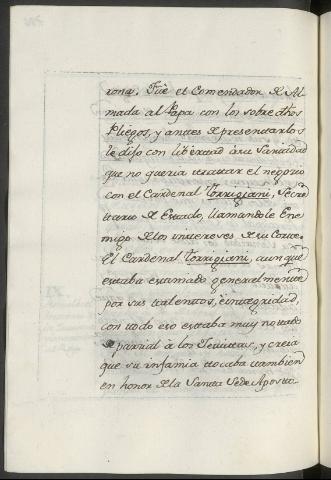 rona. Fuè el Comendador de Al-
mada al Papa con los sobre dhos
Pliegos, y antes de presentarlos
le dijo con libertad à su Santidad
que no queria tratar el negocio
con el Cardenal Torrigiani, Secre
tario de Estado, llamandole Ene
migo de los intereses de su Corte.
El Cardenal Torrigiani, aunque
estaba estimado generalmente
por sus talentos, è integridad,
con todo eso estaba muy notado
de parcial à los Jesuitas, y creia
que su infamia tocaba tambien
en honor de la Santa Sede Aposto-